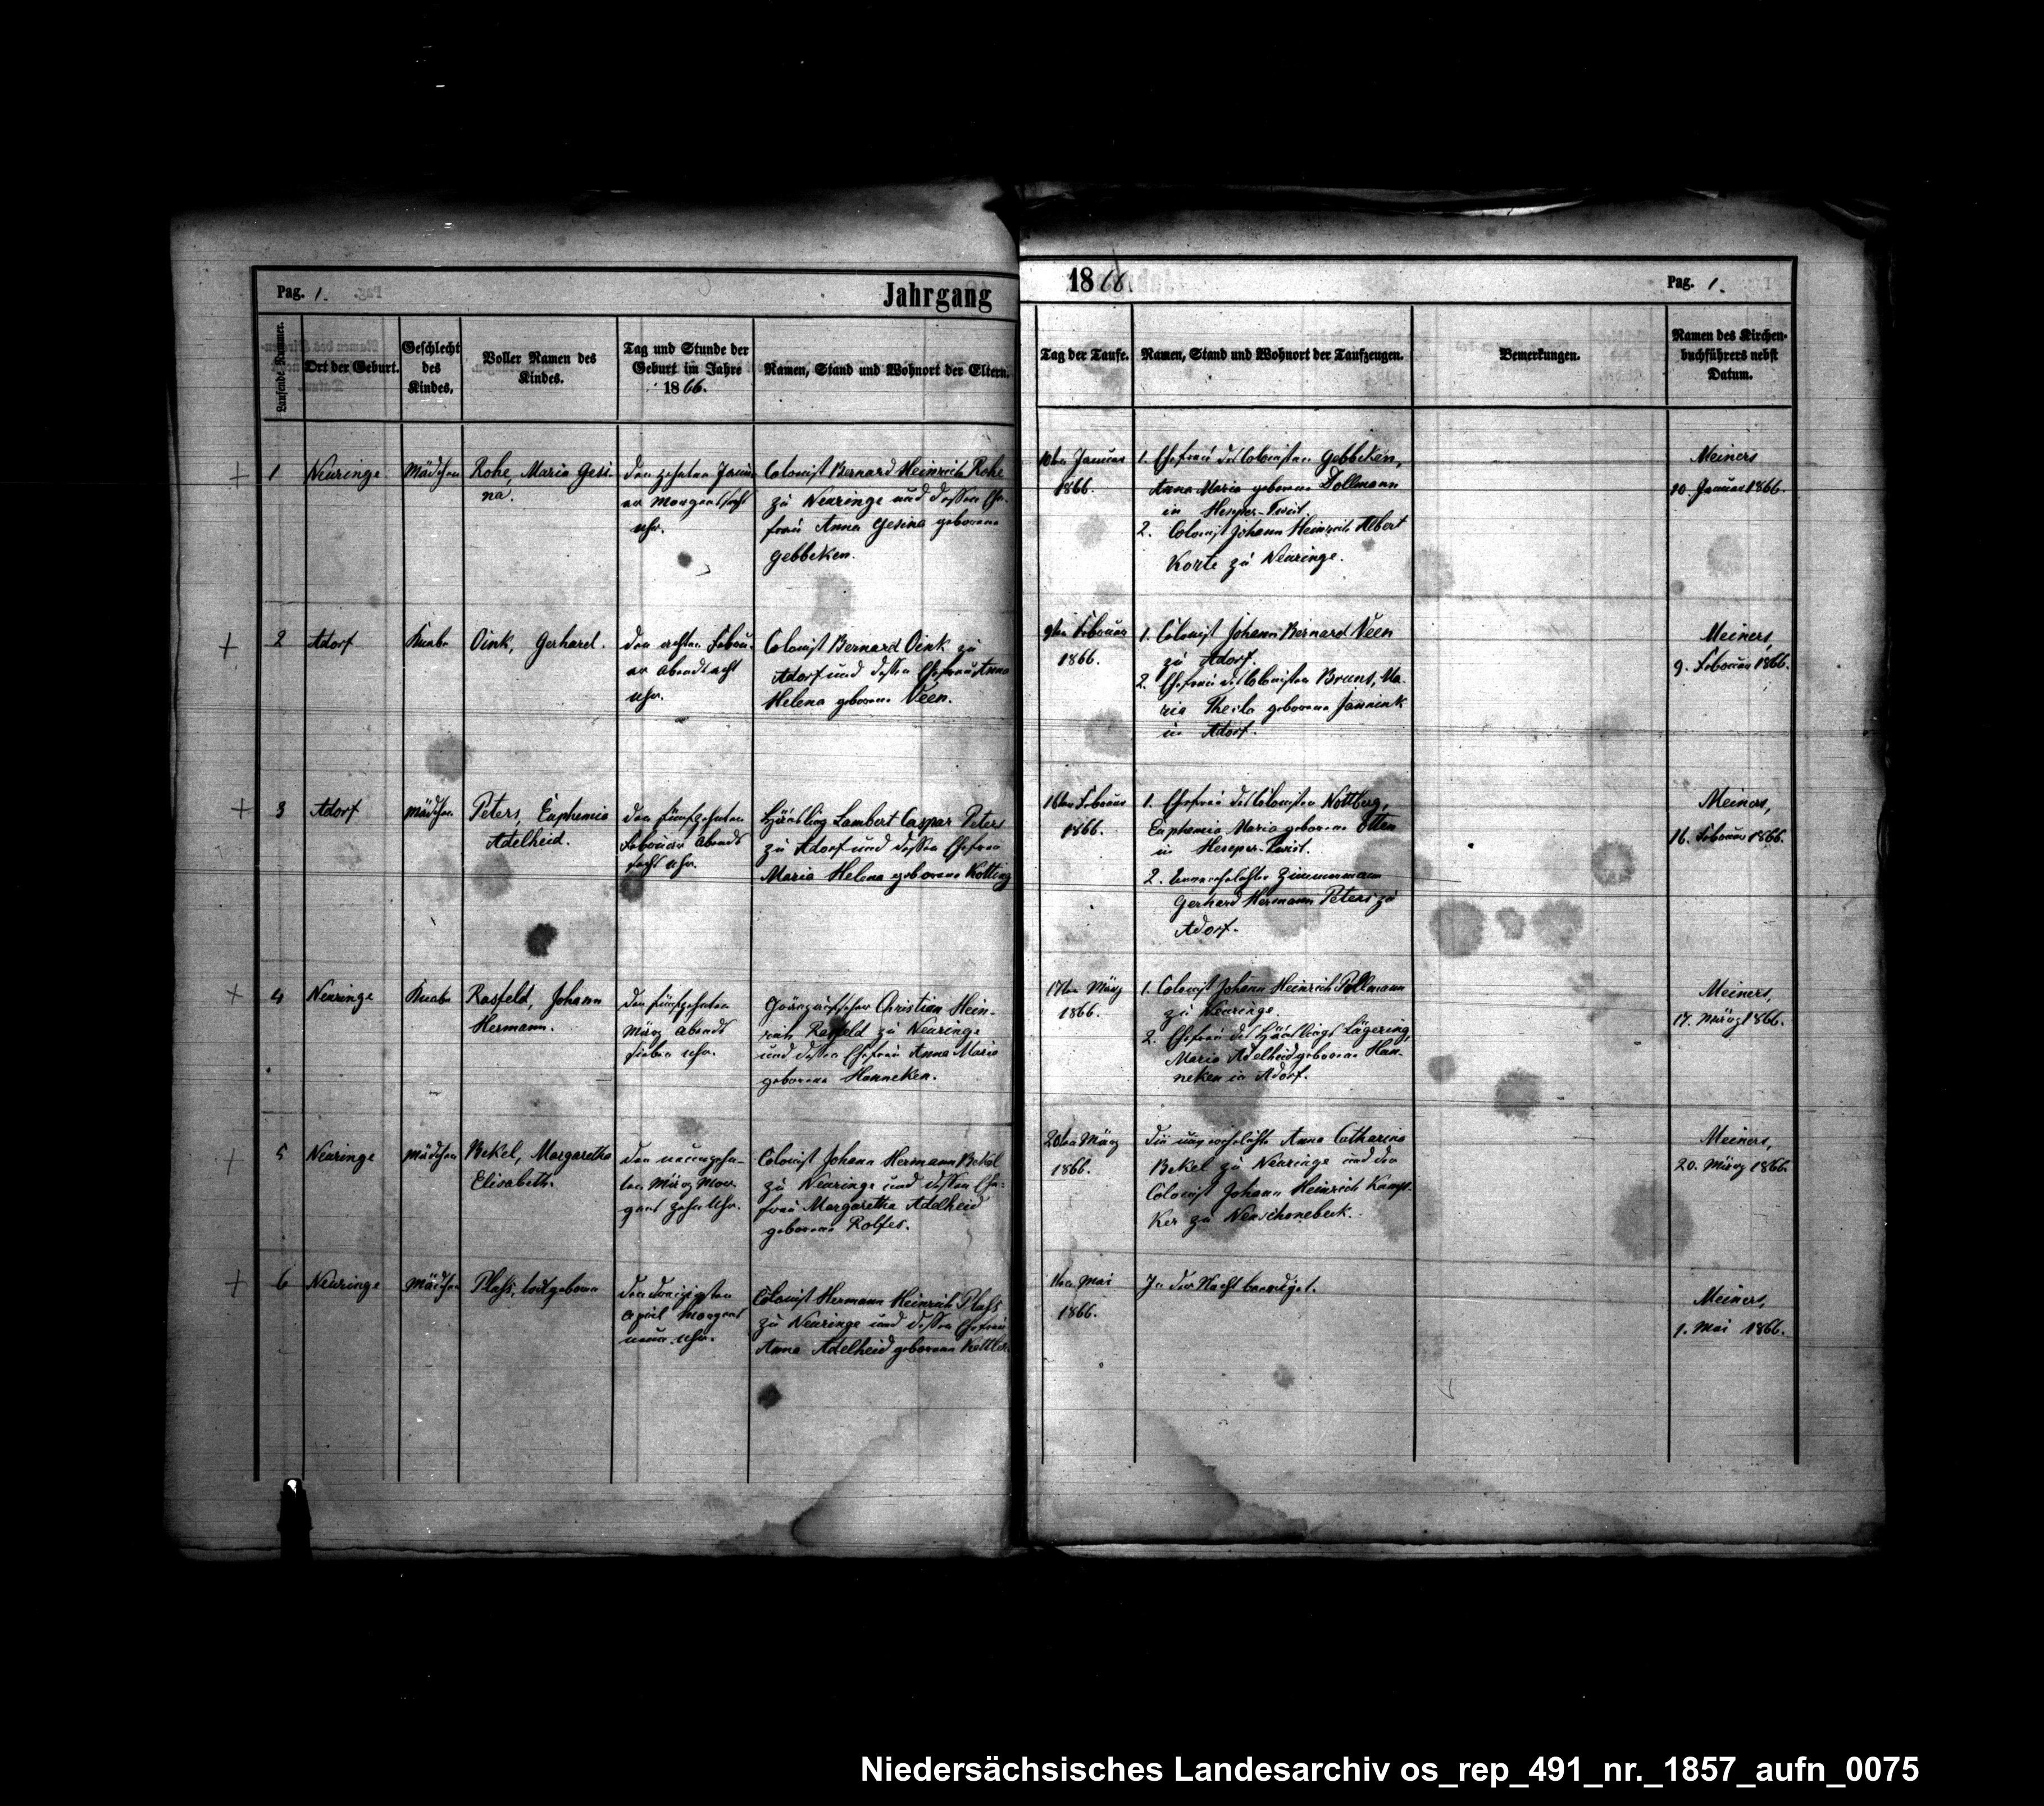 Pag. 1.
Jahrgang
1866.
Pag. 1.
Laufende Nummer.
Ort der Geburt.
Geschlecht des Kindes.
Voller Namen des Kindes.
Tag und Stunde der Geburt im Jahre 1866.
Namen, Stand und Wohnort der Eltern.
Tag der Taufe.
Namen, Stand und Wohnort der Taufzeugen.
Bemerkungen.
Namen des Kirchenbuchführers nebst Datum.
1
Neuringe
Mädchen
Rohe, Maria Gesi-
na.
den zehnten Janu-
ar Morgens
Uhr.
Colonist Bernard Heinrich Rohe
zu Neuringe und dessen Ehe-
frau Anna Gesina geborene
Gebbeken.
10ten Januar
1866.
1. Ehefrau des Colonisten Gebbeken,
Anna Maria geborene Dollmann
in Hesper-Twist.
2. Colonist Johann Heinrich Albert
Korte zu Neuringe.
Meiners
10. Januar 1866.
2
Adorf
Knabe
Oink, Gerhard.
den achten Febru-
ar Abends acht
Uhr.
Colonist Bernard Oink zu
Adorf und dessen Ehefrau Anna
Helena geborene Veen.
9ten Februar
1866.
1. Colonist Johann Bernard Veen
zu Adorf.
2. Ehefrau des Colonisten Bruns, Ma-
ria geborene Jannink
in Adorf.
Meiners,
9. Februar 1866.
3
Adorf
Mädchen
Peters, Euphemia
Adelheid.
den fünfzehnten
Februar Abends
sechs Uhr.
Häusling Lambert Caspar Peters
zu Adorf und dessen Ehefrau
Maria Helena geborene Kotting
16ten Februar
1866.
1. Ehefrau des Colonisten Nottberg,
Euphemia Maria geborene Otten
in Twist.
2. Unverehelichter Zimmermann
Gerhard Hermann Peters zu
Adorf.
Meiners,
16. Februar 1866.
4
Neuringe
Knabe
Rasfeld, Johann
Hermann.
den fünfzehnten
März Abends
sieben Uhr.
Christian Hein-
rich Rasfeld zu Neuringe
und dessen Ehefrau Anna Maria
geborene Hanneken.
17ten März
1866.
1. Colonist Johann Heinrich Pollmann
zu Neuringe.
2. Ehefrau des Häuslings Lägering,
Maria Adelheid geborene Han-
neken in Adorf.
Meiners,
17. März 1866.
5
Neuringe
Mädchen
Bekel, Margaretha
Elisabeth.
den neunzehn-
ten März Mor-
gens zehn Uhr.
Colonist Johann Hermann Bekel
zu Neuringe und dessen Ehe-
frau Margaretha Adelheid
geborene Rolfes.
20ten März
1866.
Die unverehelichte Anna Catharina
Bekel zu Neuringe und der
Colonist Johann Heinrich Kamp-
ker zu Neuschonebeck.
Meiners,
20. März 1866.
6
Neuringe
Mädchen
Plass, todtgeboren
den dreizigsten
April Morgens
neun Uhr.
Colonist Hermann Heinrich Plass
zu Neuringe und dessen Ehefrau
Anna Adelheid geborene Kettler.
1ten Mai
1866.
In der Nacht beerdiget.
Meiners,
1. Mai 1866.
Niedersächsisches Landesarchiv os_rep_491_nr._1857_aufn_0075